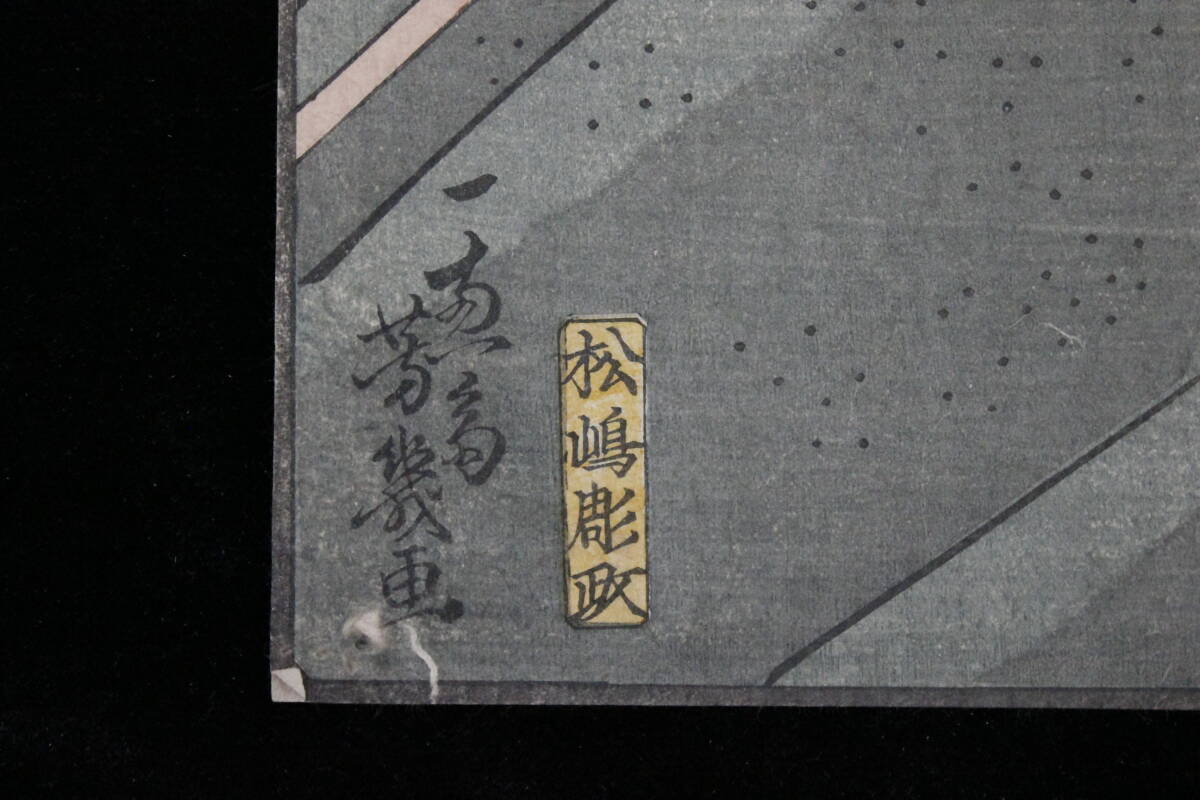 一蕙斎
芳幾画
松嶋彫政